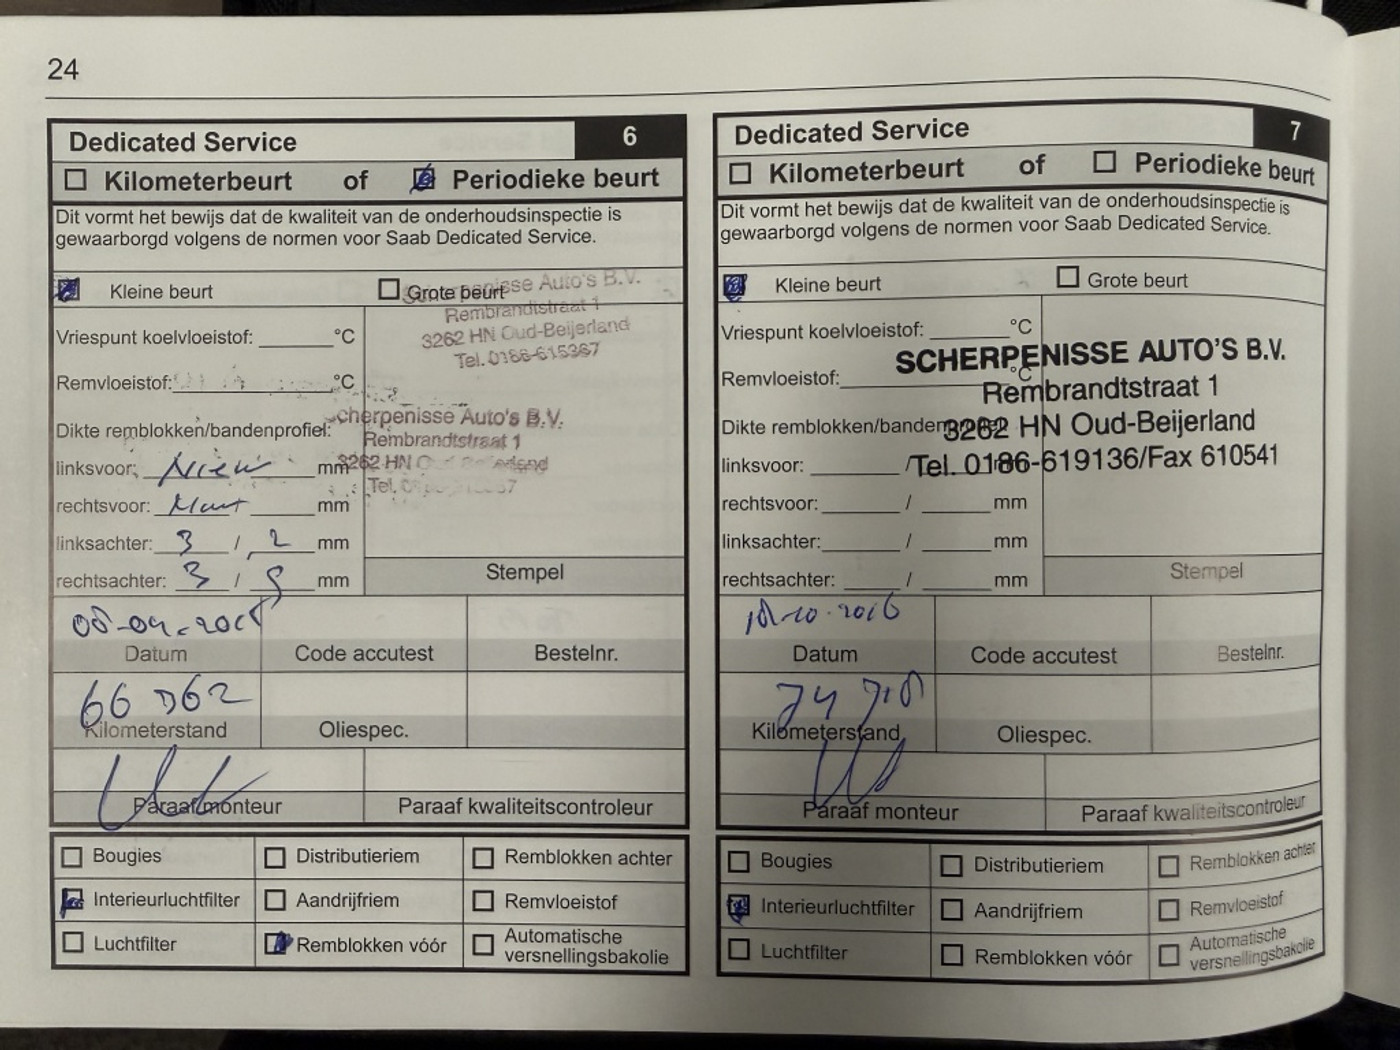 24
Dedicated Service 6
Kilometerbeurt of Periodieke beurt
Dit vormt het bewijs dat de kwaliteit van de onderhoudsinspectie is
gewaarborgd volgens de normen voor Saab Dedicated Service.
Kleine beurt Grote beurt
Scherpenisse Auto's B.V.
Rembrandtstraat 1
3262 HN Oud-Beijerland
Tel. 0186-615367
Vriespunt koelvloeistof: °C
Remvloeistof: °C
Dikte remblokken/bandenprofiel:
Scherpenisse Auto's B.V.
Rembrandtstraat 1
3262 HN Oud-Beijerland
Tel.
linksvoor: mm
rechtsvoor: mm
linksachter: 3 / 2 mm
rechtsachter: 3 / mm
Stempel
Datum Code accutest Bestelnr.
66
Kilometerstand Oliespec.
Paraaf monteur Paraaf kwaliteitscontroleur
Bougies Distributieriem Remblokken achter
Interieurluchtfilter Aandrijfriem Remvloeistof
Luchtfilter Remblokken vóór Automatische
versnellingsbakolie
Dedicated Service 7
Kilometerbeurt of Periodieke beurt
Dit vormt het bewijs dat de kwaliteit van de onderhoudsinspectie is
gewaarborgd volgens de normen voor Saab Dedicated Service.
Kleine beurt Grote beurt
Vriespunt koelvloeistof: °C
SCHERPENISSE AUTO'S B.V.
Rembrandtstraat 1
3262 HN Oud-Beijerland
Tel. 0186-619136/Fax 610541
Remvloeistof: °C
Dikte remblokken/bandenprofiel:
linksvoor: /
rechtsvoor: / mm
linksachter: / mm
rechtsachter: / mm
Stempel
Datum Code accutest Bestelnr.
Kilometerstand Oliespec.
Paraaf monteur Paraaf kwaliteitscontroleur
Bougies Distributieriem Remblokken achter
Interieurluchtfilter Aandrijfriem Remvloeistof
Luchtfilter Remblokken vóór Automatische
versnellingsbakolie